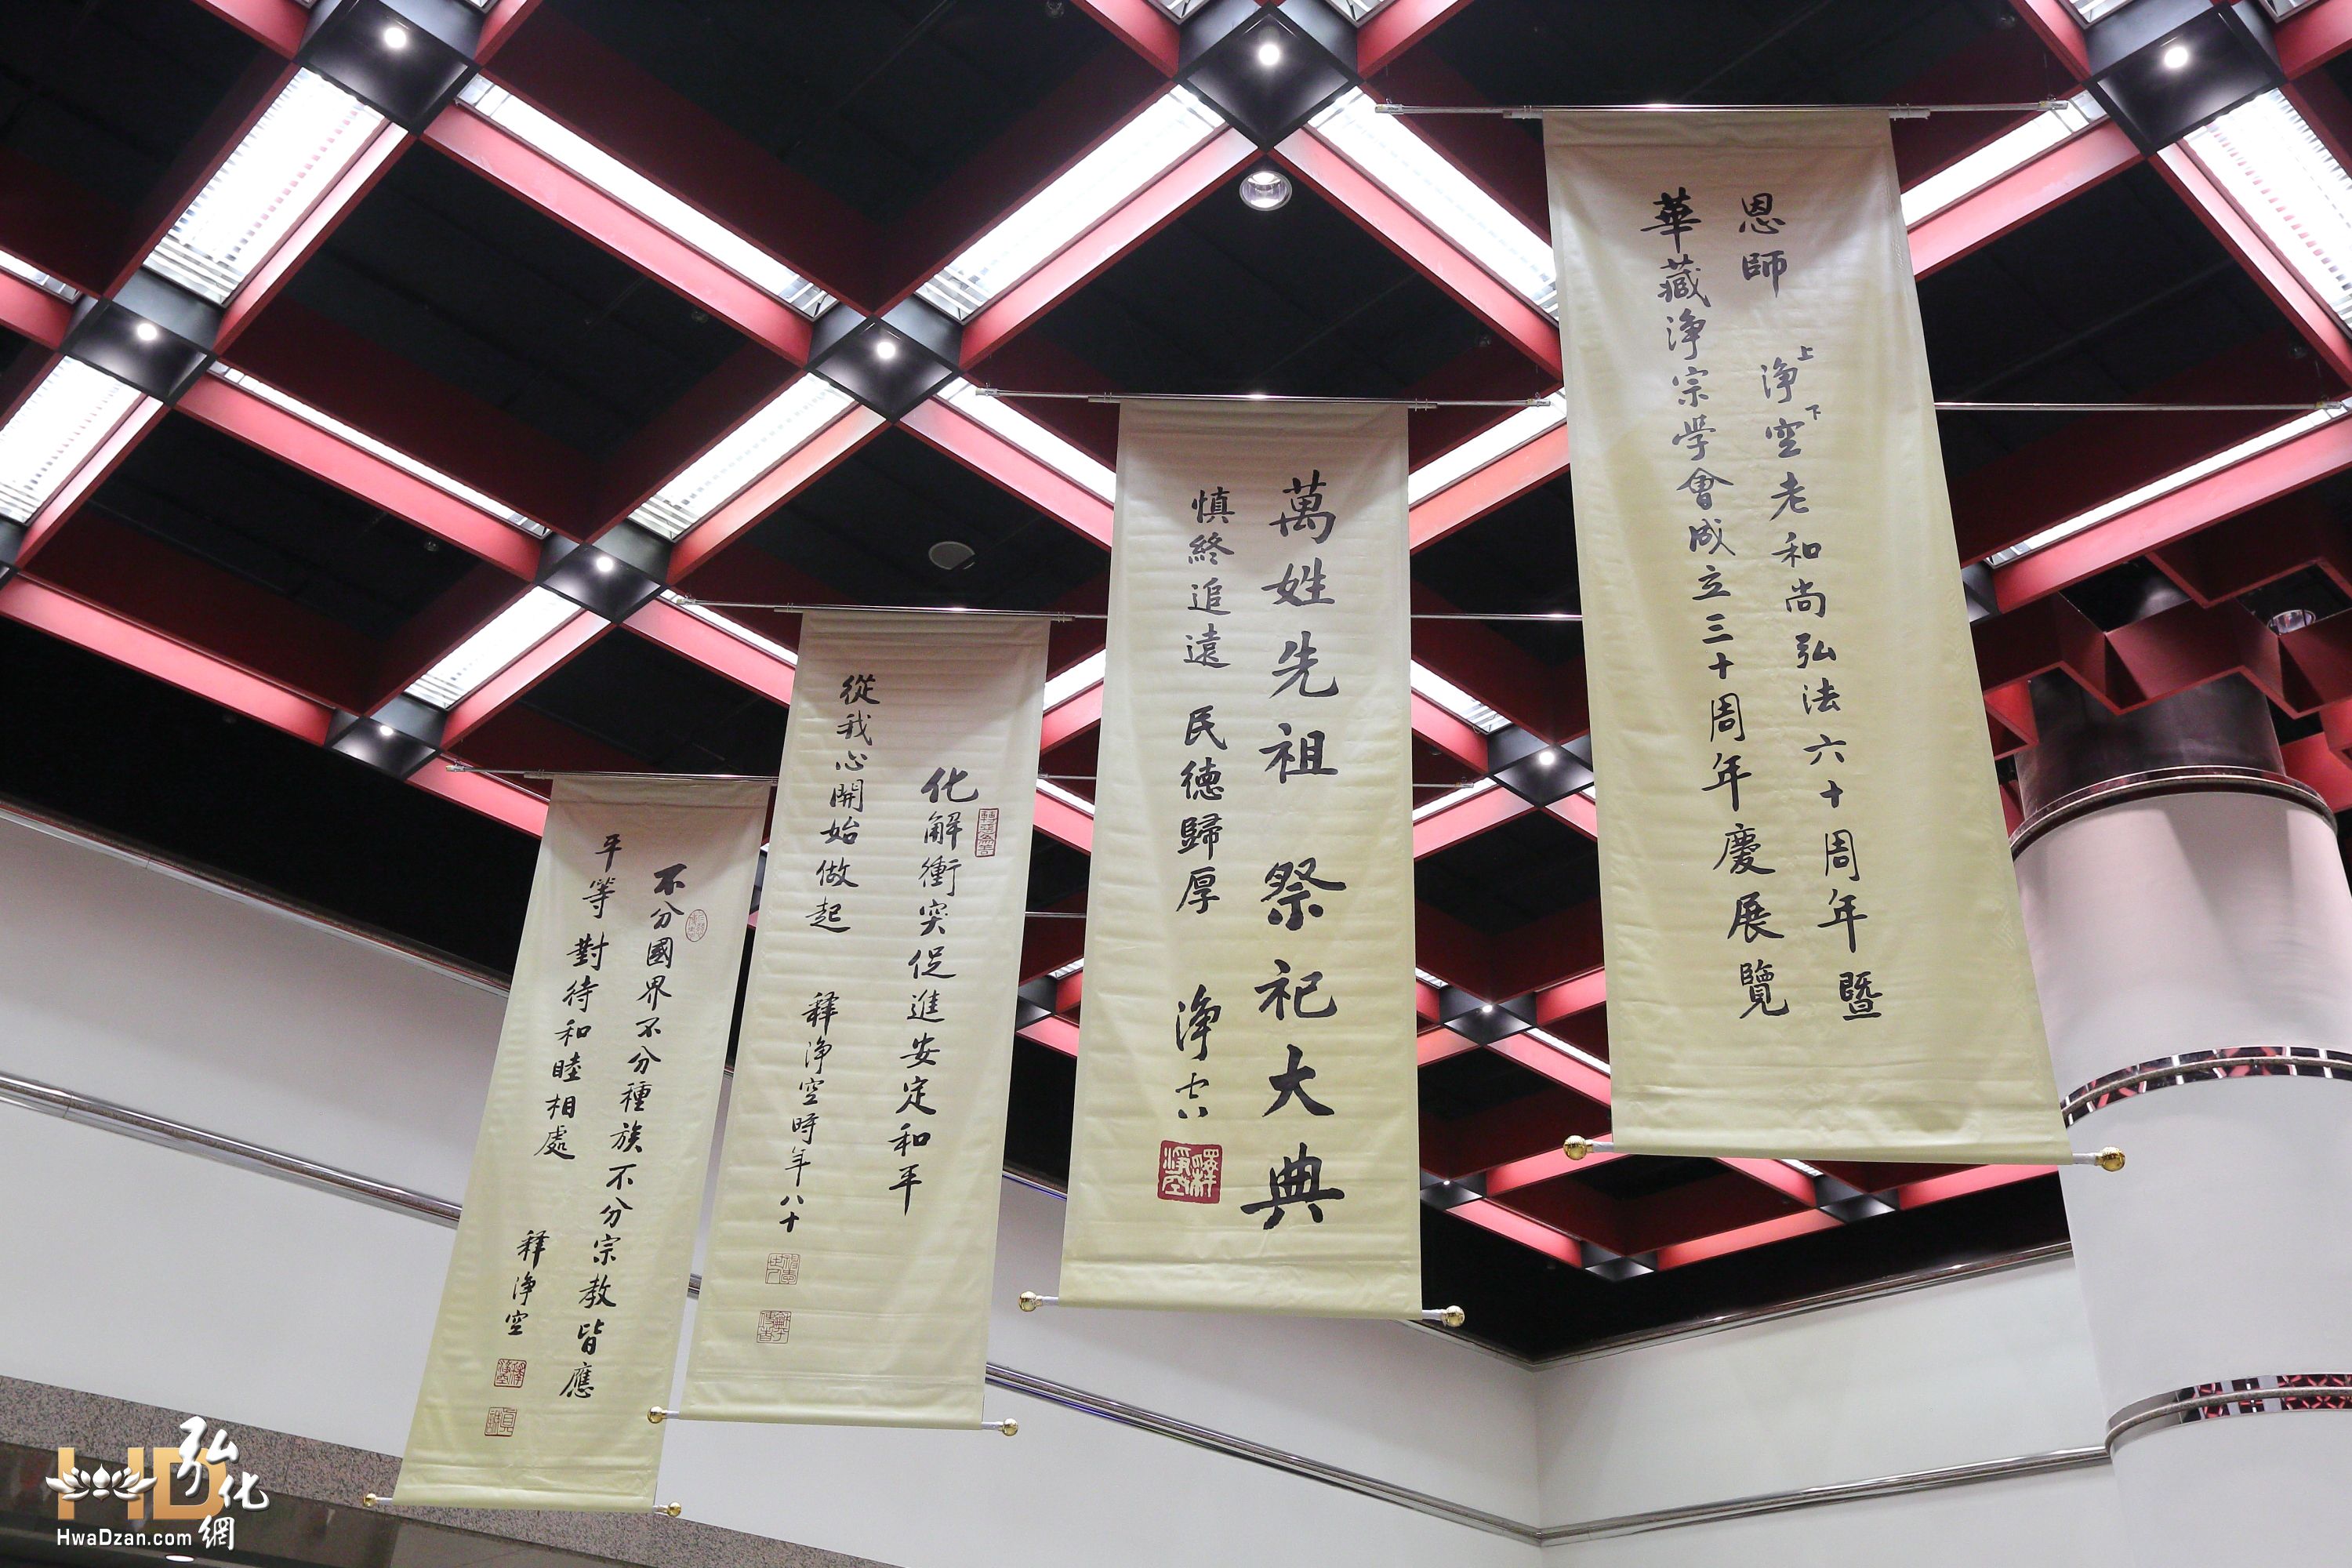 恩師 上淨下空老和尚弘法六十周年暨
華藏淨宗學會成立三十周年慶展覽
萬姓先祖 祭祀大典
慎終追遠 民德歸厚 淨空
釋淨空
化解衝突促進安定和平
從我心開始做起 釋淨空時年八十
不分國界不分種族不分宗教皆應
平等對待和睦相處 釋淨空
HD
弘化網
HwaDzan.com